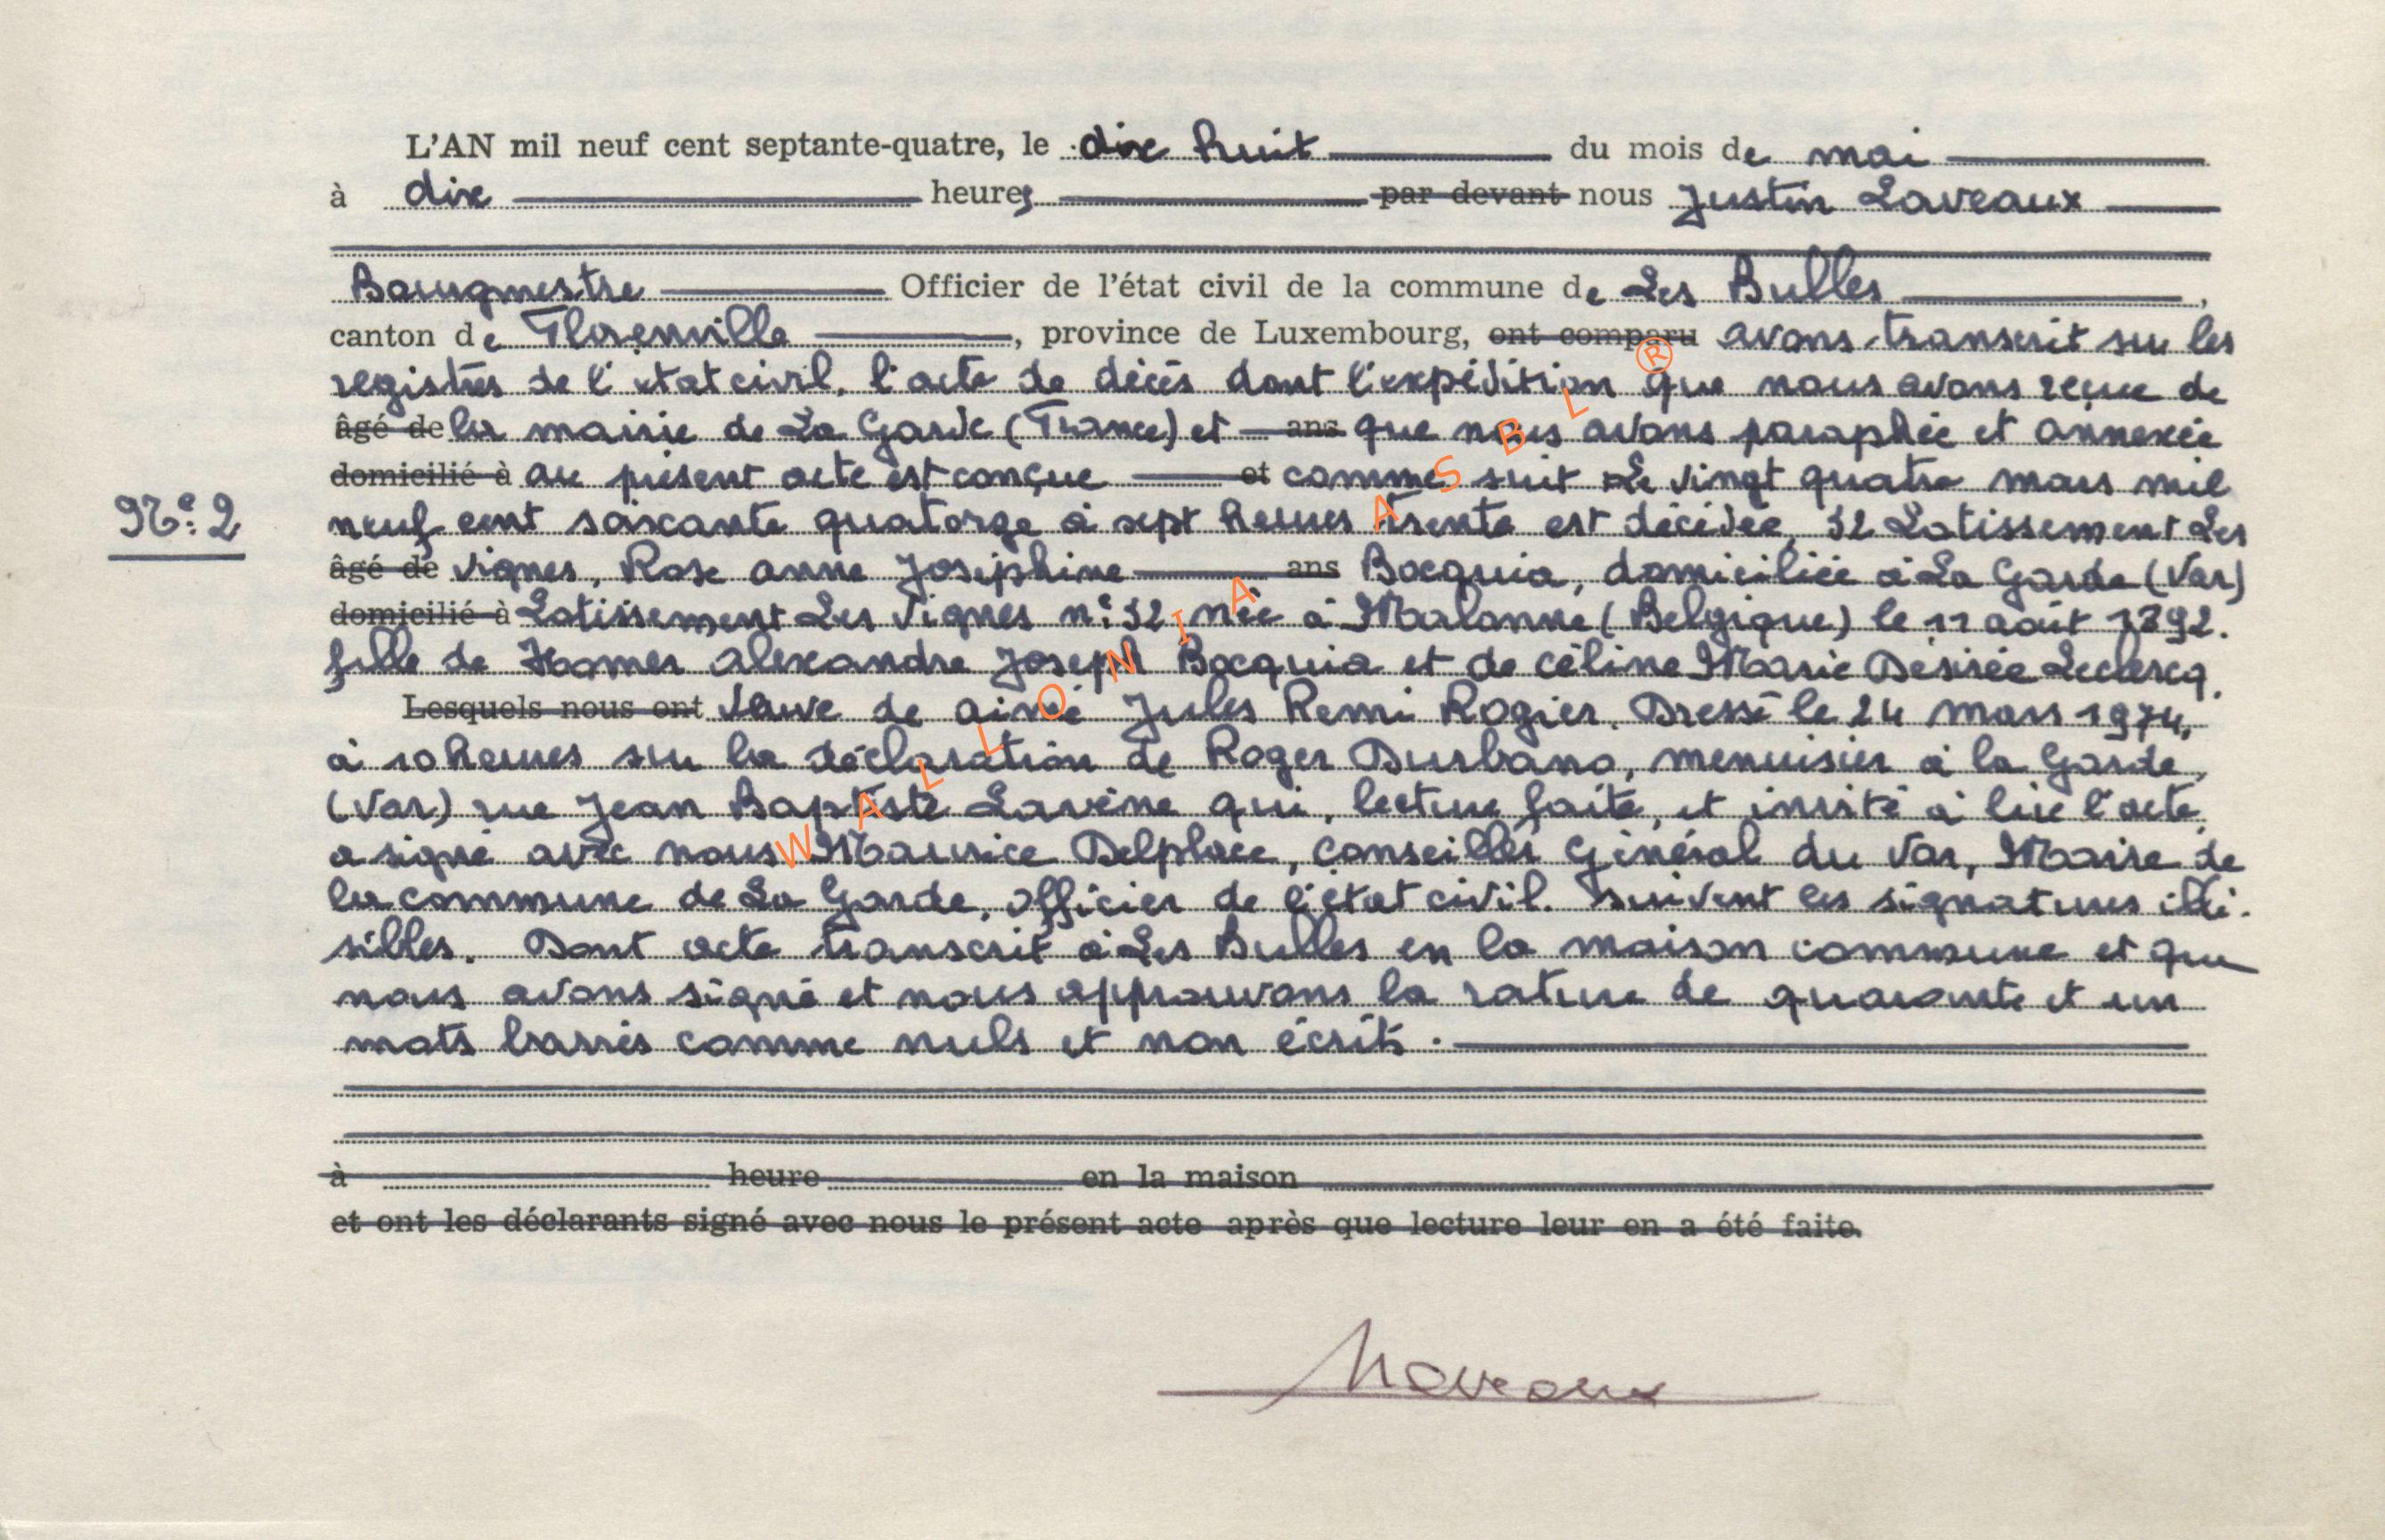 L'AN mil neuf cent septante-quatre, le dix huit du mois de mai
à dix heures par devant nous Justin Laveaux
Bourgmestre Officier de l'état civil de la commune de Les Bulles,
canton de Florenville, province de Luxembourg, ont comparu avons transcrit sur les
registres de l'état civil, l'acte de décès dont l'expédition que nous avons reçue de
âgé de la mairie de La Garde (France) et ans que nous avons paraphée et annexée
domicilié à au présent acte est conçue et comme suit Le vingt quatre mars mil
N° 2
neuf cent soixante quatorze à sept heures trente est décédée, 32 Lotissement Les
âgé de vignes, Rose anne Joséphine ans Bocquia, domiciliée à La Garde (Var)
domicilié à Lotissement Les Vignes n° 32 née à Malonne (Belgique) le 11 août 1892.
fille de Homer alexandre Joseph Bocquia et de céline Marie Désirée Leclercq.
Lesquels nous ont veuve de aimé Jules Remi Rogier. Dressé le 24 mars 1974,
à 10 heures sur la déclaration de Roger Durbano, menuisier à la Garde,
(Var) rue Jean Baptiste Lavène qui, lecture faite, et invité à lire l'acte,
a signé avec nous Maurice Delplace, conseiller Général du Var, Maire de
la commune de La Garde, officier de l'état civil. Suivent les signatures illi-
sibles. Dont acte transcrit à Les Bulles en la maison commune et que
nous avons signé et nous approuvons la rature de quarante et un
mots barrés comme nuls et non écrits.
à heure en la maison
et ont les déclarants signé avec nous le présent acte après que lecture leur en a été faite.
Laveaux
WALLONIA ASBL ®